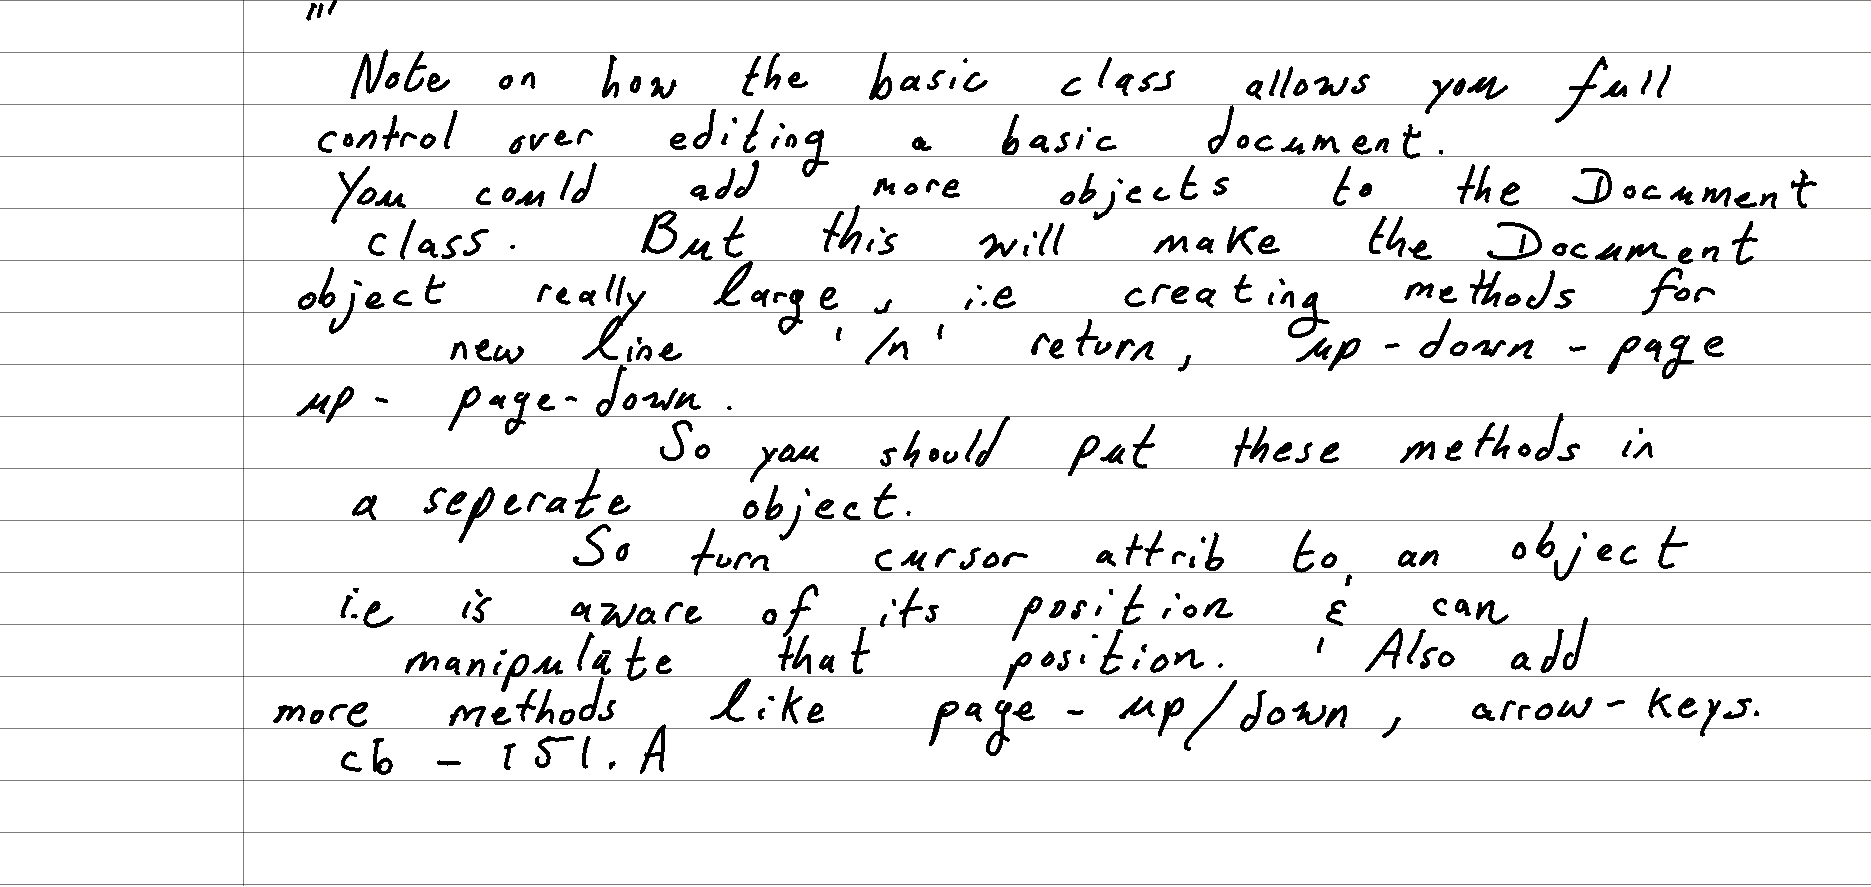 "'
Note on how the basic class allows you full
control over editing a basic document.
You could add more objects to the Document
class. But this will make the Document
object really large, i.e creating methods for
new line '/n' return, up - down - page
up - page-down.
So you should put these methods in
a seperate object.
So turn cursor attrib to an object
i.e is aware of its position & can
manipulate that position. ' Also add
more methods like page - up/down, arrow-keys.
cb - 151.A